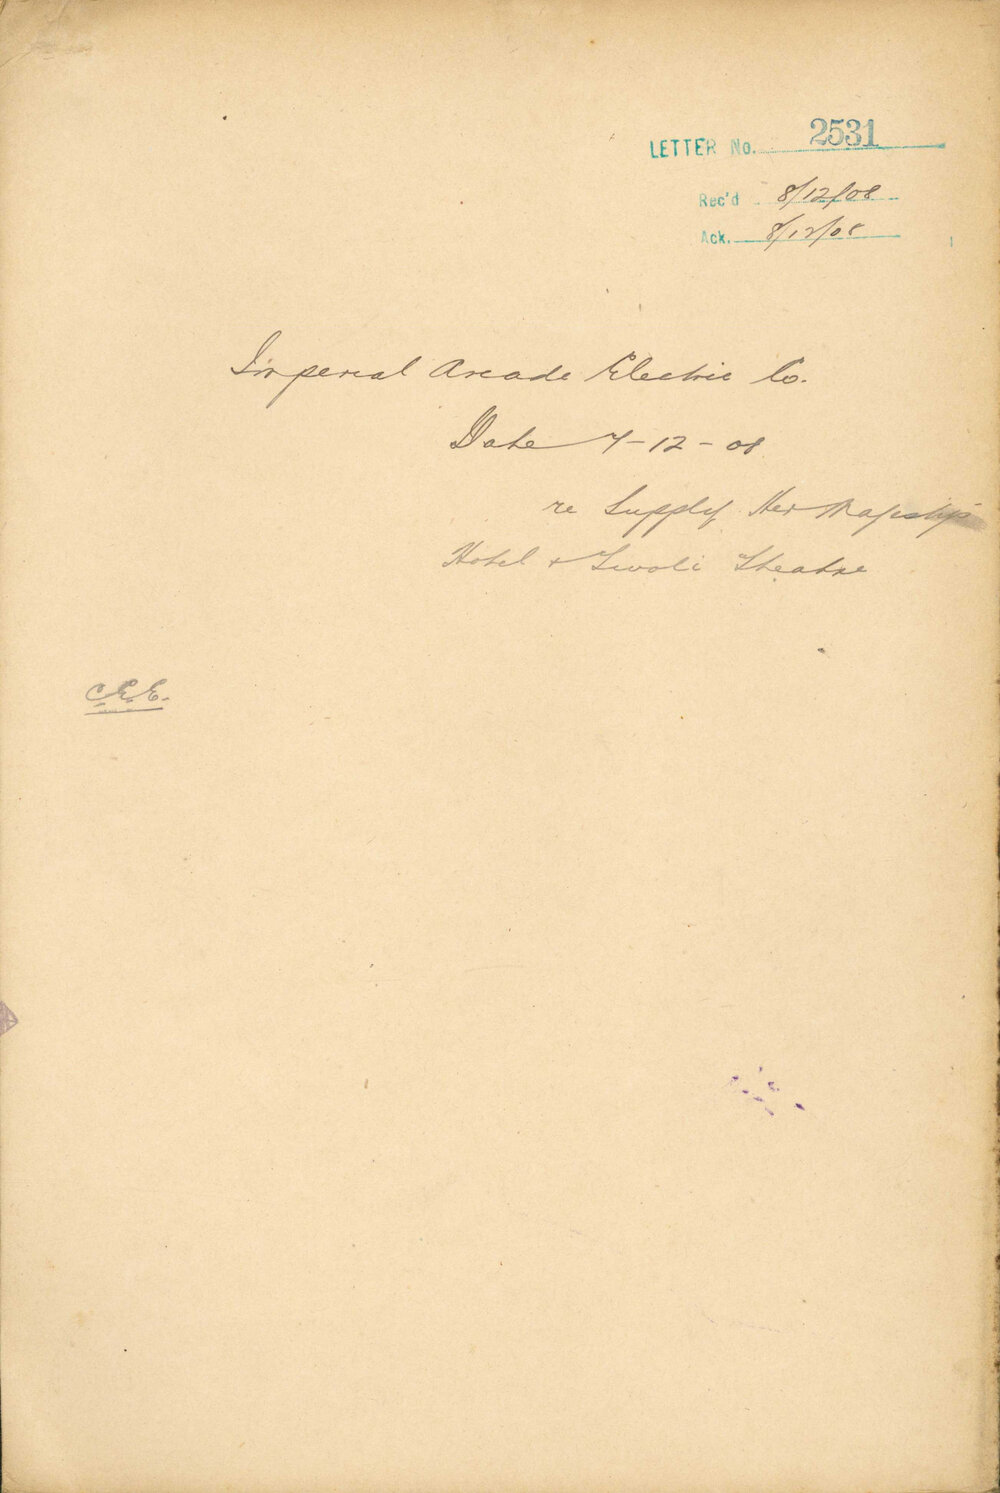 LETTER No. 2531
Rec'd 8/12/08
Ack. 8/12/08
Imperial Arcade Electric Co.
Date 7-12-08
re Supply Her Majesty's
Hotel & Tivoli Theatre
C.E.E.